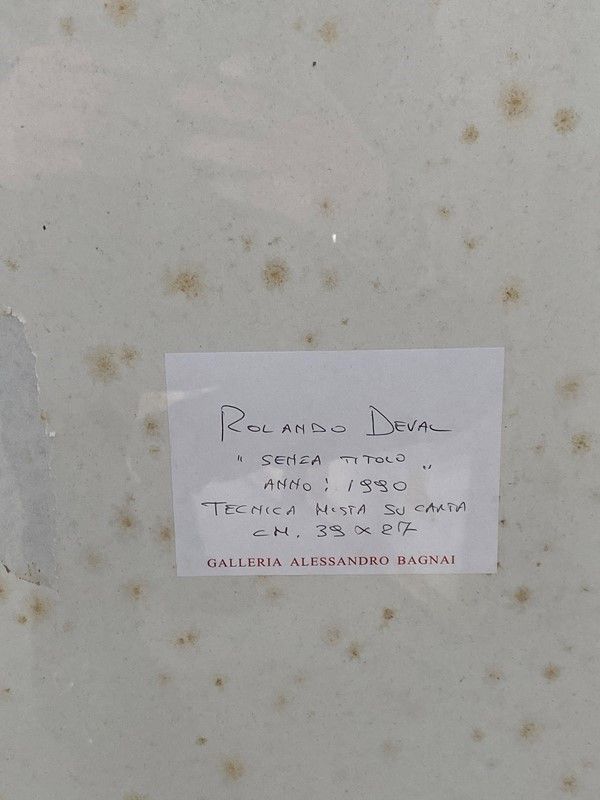 ROLANDO DEVAL
" SENZA TITOLO "
ANNO: 1990
TECNICA MISTA SU CARTA
CM. 39 x 27
GALLERIA ALESSANDRO BAGNAI